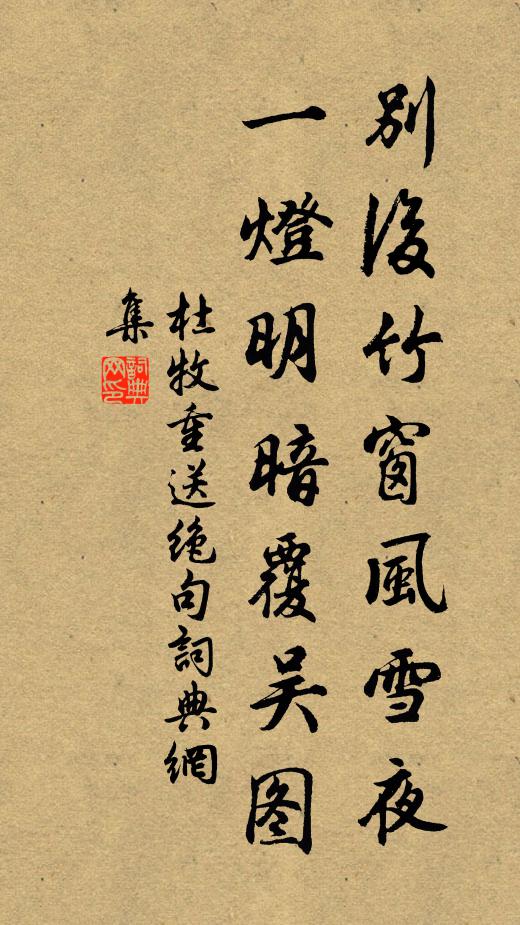 別後竹窗風雪夜
一燈明暗覆吴图
杜牧重送绝句詞典網
集
詞典网印